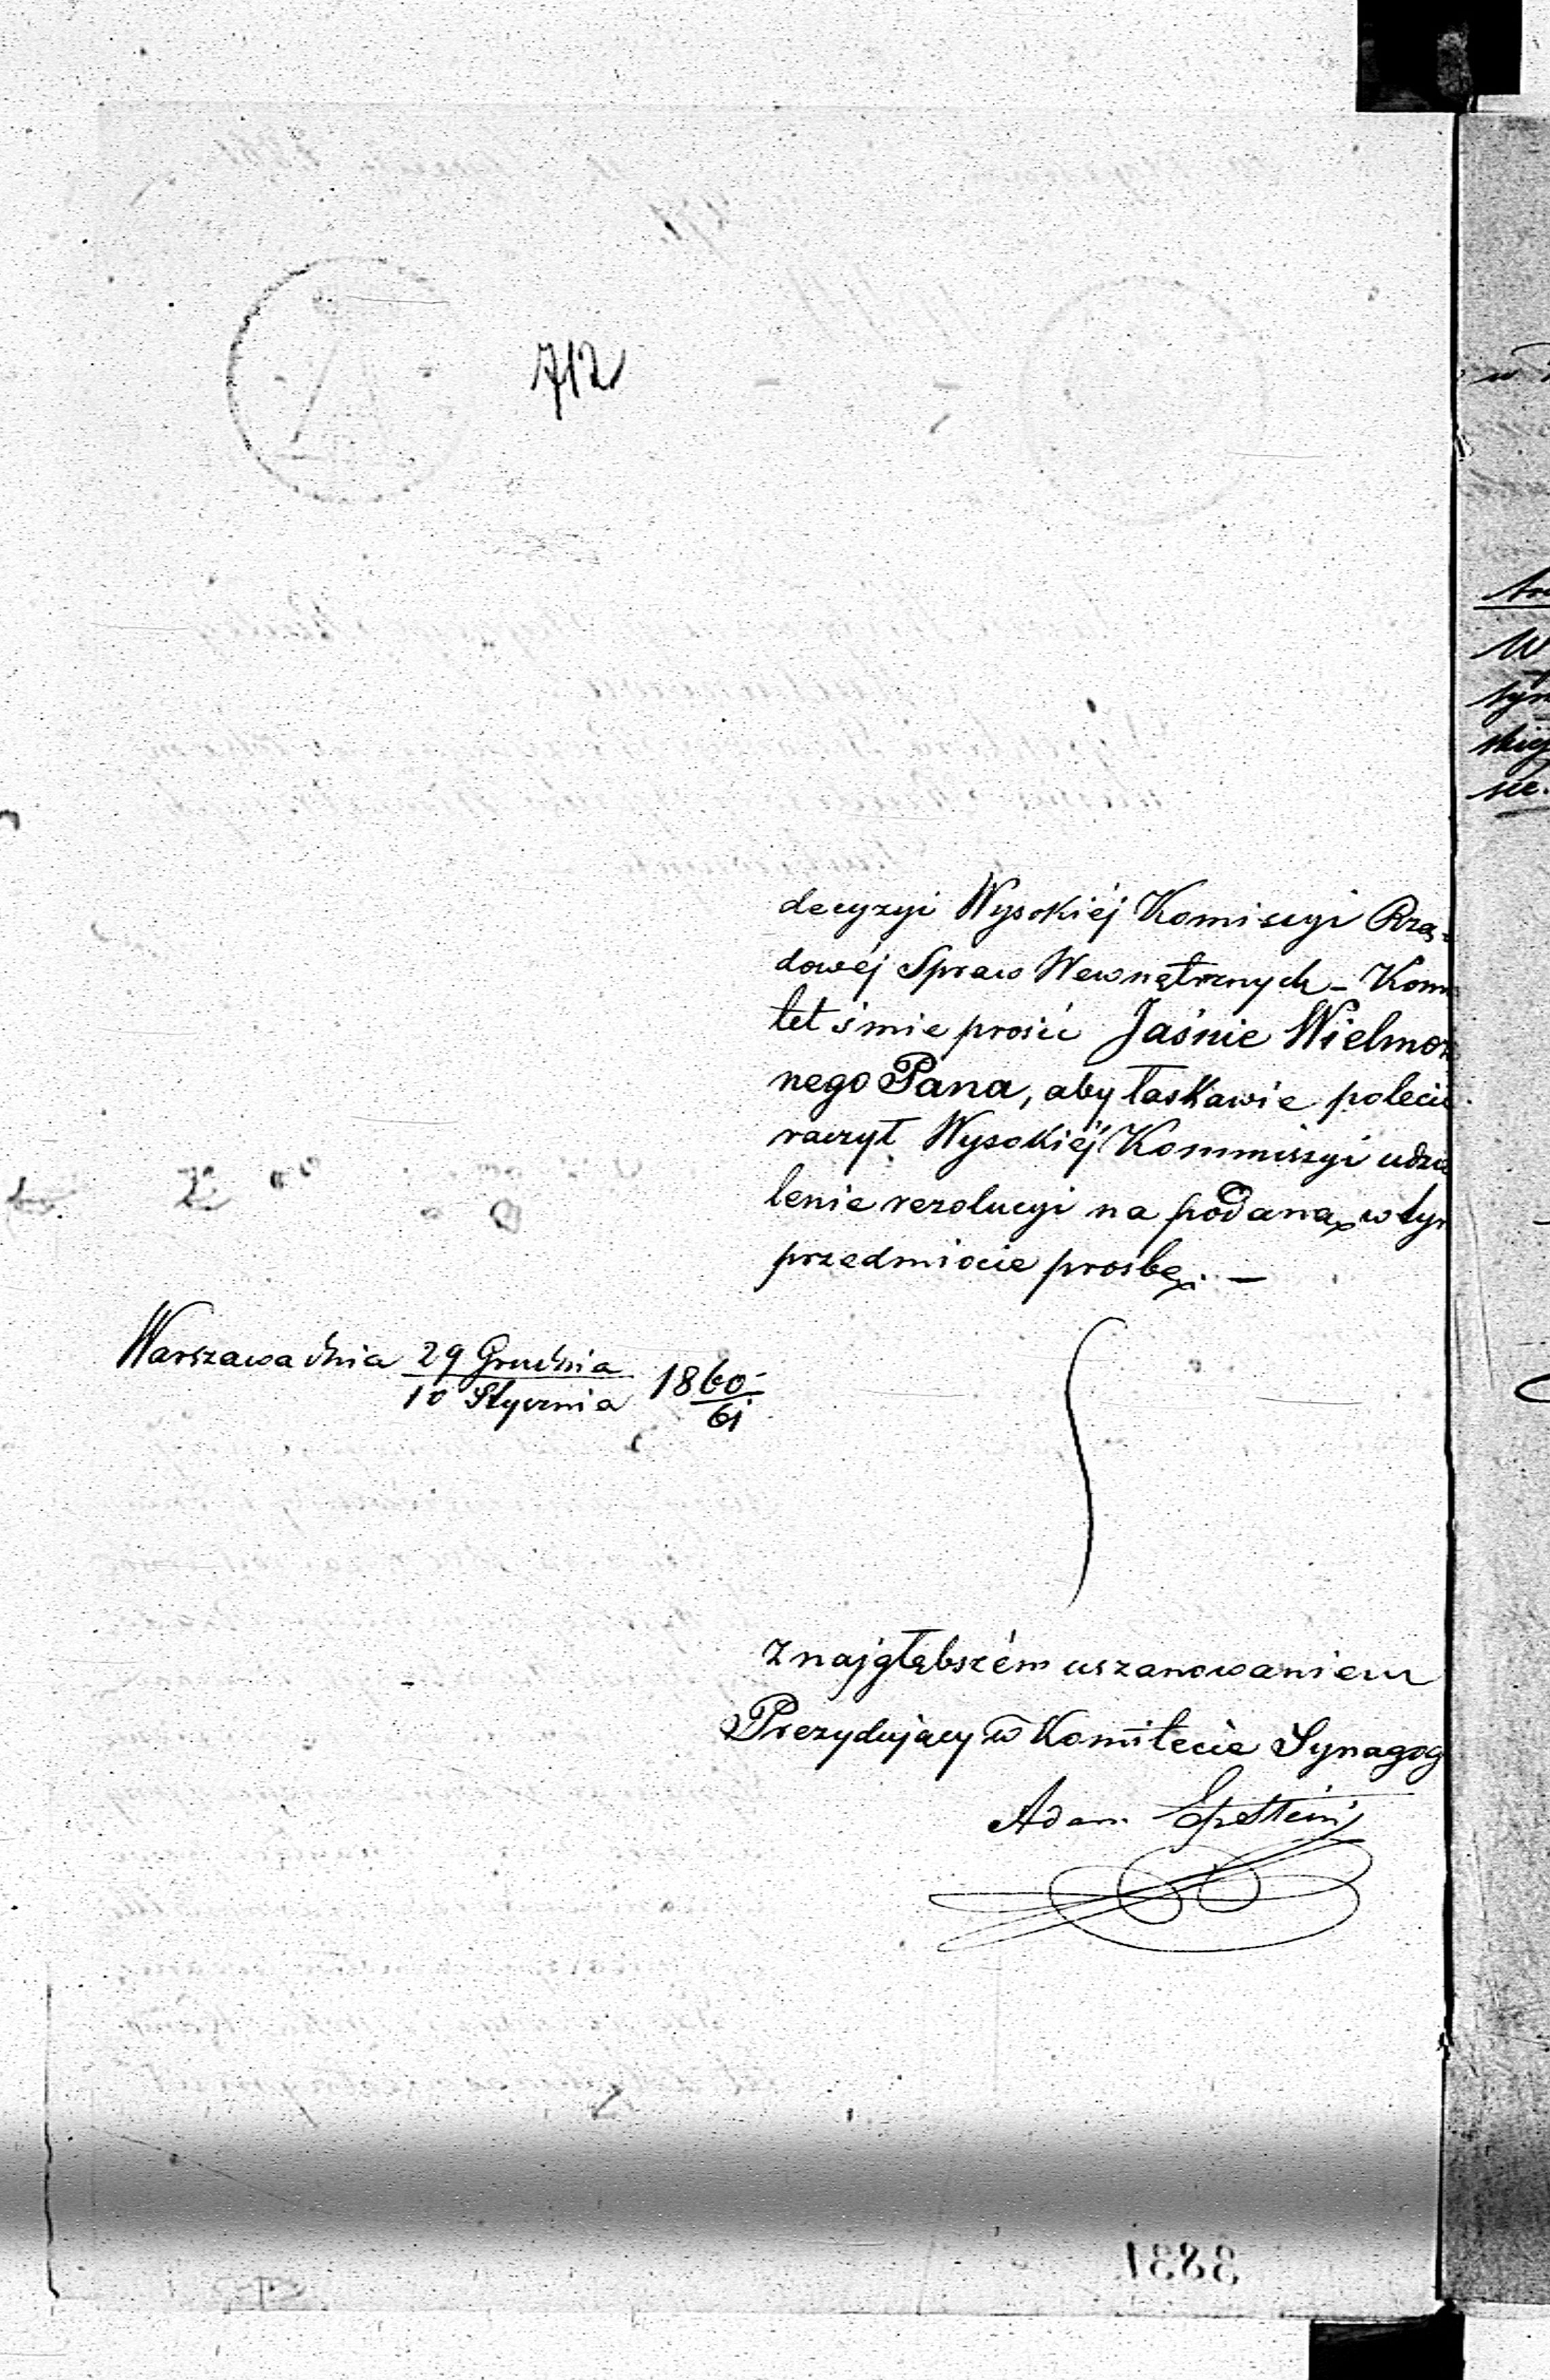 712
decyzyi Wysokiéj Komissyi Rzą-
dowéj Spraw Wewnętrznych - Komi
tet śmie prosić Jaśnie Wielmoż
nego Pana, aby łaskawie polecić
raczył Wysokiéj Kommissyi udzie
lenie rezolucyi na podaną w tym
przedmiocie prosbę. —
Warszawa dnia 29 Grudnia / 10 Stycznia 1860/61
Z najgłębszém uszanowaniem
Prezydujący w Komitecie Synagog
Adam Epstein
3831